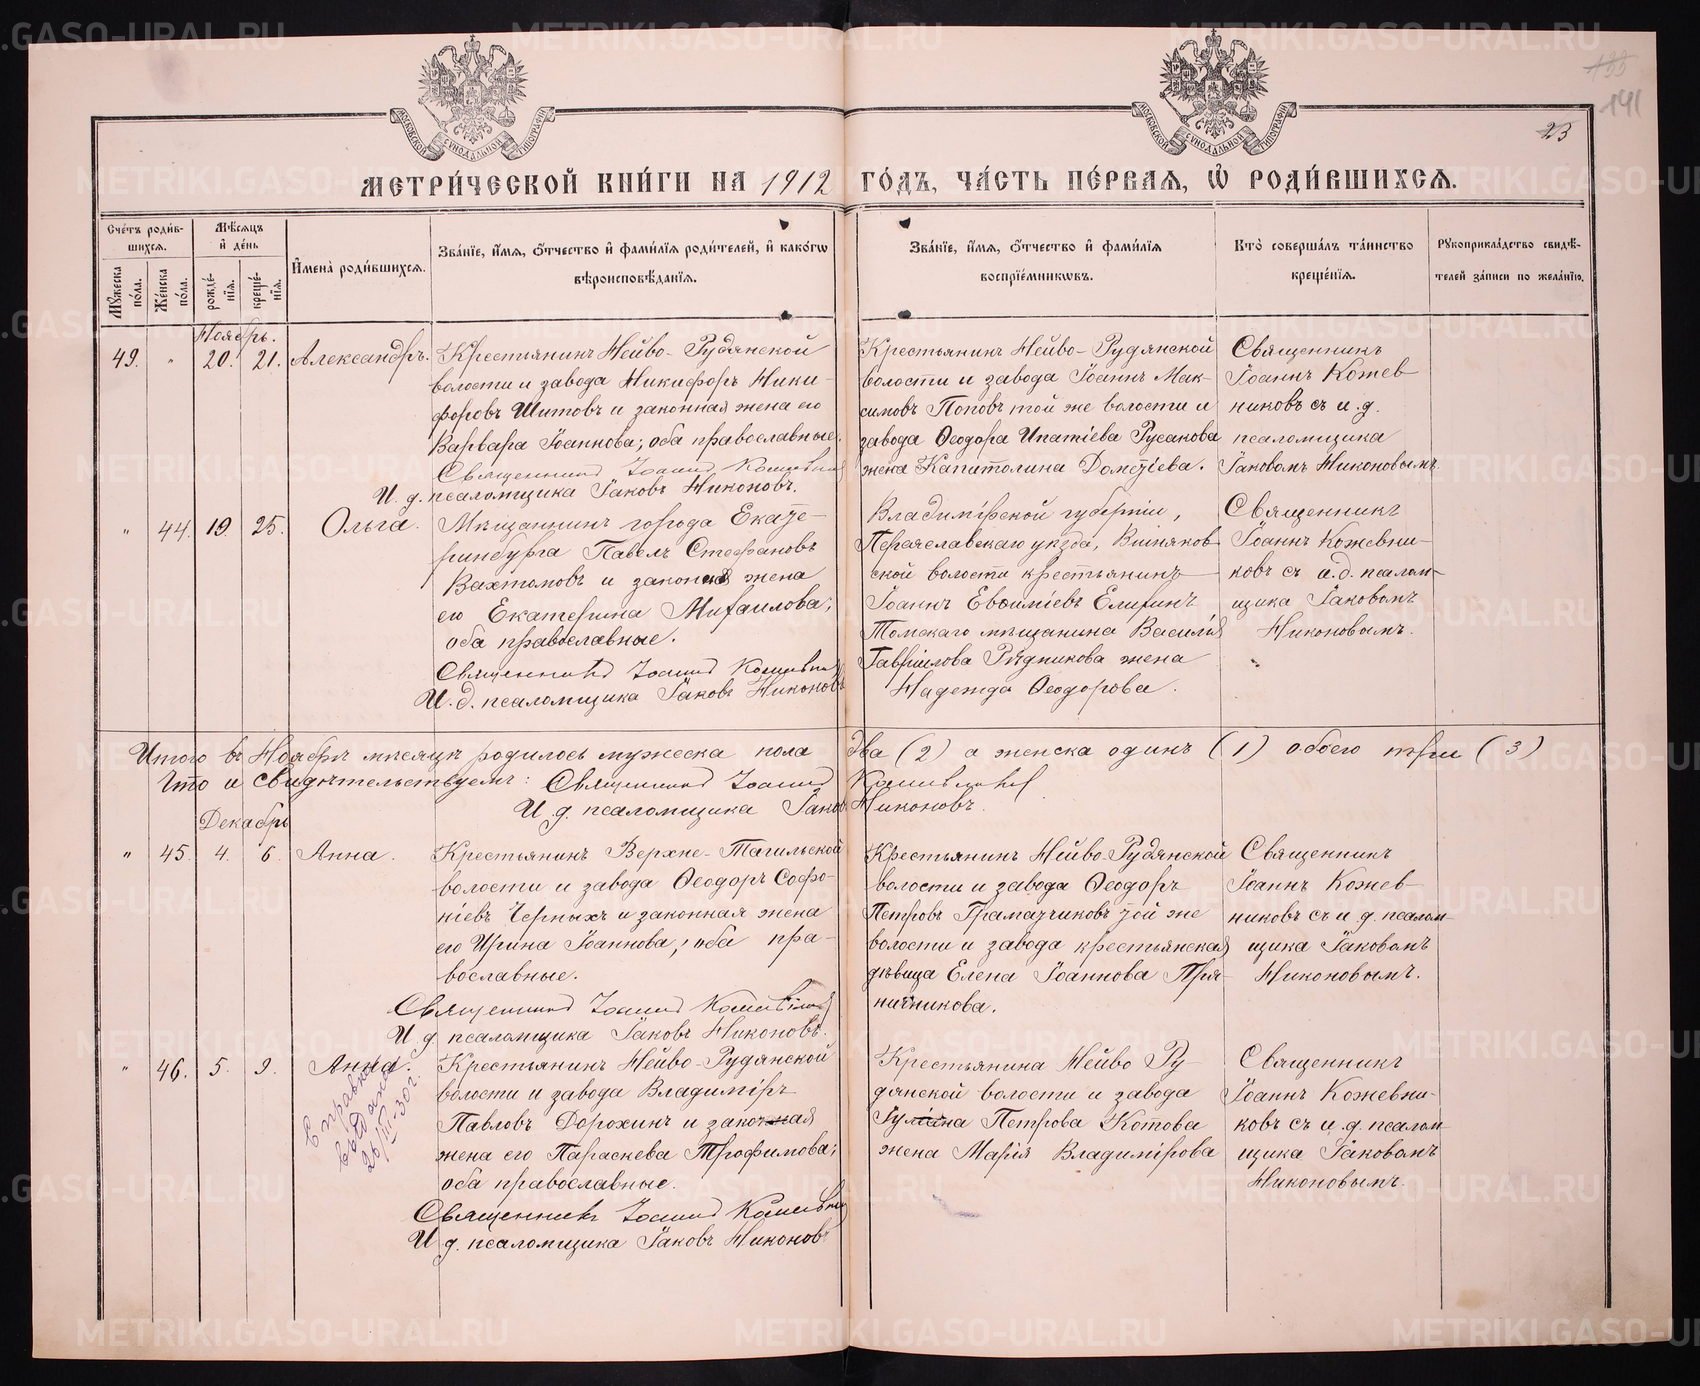 133
141
23
МЕТРИ́ЧЕСКОЙ КНИ́ГИ НА 1912 ГО́ДЪ, ЧА́СТЬ ПЕ́РВАЯ, Ѡ РОДИ́ВШИХСЯ.
Сче́тъ роди́вшихся.
Мꙋ́жеска по́ла.
Же́нска по́ла.
Мѣ́сяцъ и҆ де́нь
рожде́нїя.
креще́нїя.
И҆мена̀ роди́вшихся.
Зва́нїе, и҆́мя, ѻ҆́тчество и҆ фами́лїя роди́телей, и҆ како́гѡ вѣроисповѣ́данїя.
Зва́нїе, и҆́мя, ѻ҆́тчество и҆ фами́лїя воспрїе́мникѡвъ.
Кто̀ соверша́лъ та́инство креще́нїя.
Рꙋкоприкла́дство свидѣ́телей за́писи по жела́нїю.
Ноябрь.
49. " 20. 21. Александръ.
Крестьянинъ Нейво-Рудянской
волости и завода Никифоръ Ники-
форовъ Шитовъ и законная жена его
Варвара Іоаннова; оба православные.
Священникъ Іоаннъ Кожевник
И. д. псаломщика Іаковъ Никоновъ.
Крестьянинъ Нейво-Рудянской
волости и завода Іоаннъ Мак-
симовъ Поповъ той же волости и
завода Ѳеодора Ипатіева Русакова
жена Капитолина Дометіева.
Священникъ
Іоаннъ Кожев-
никовъ съ и.д.
псаломщика
Іаковомъ Никоновымъ
" 44. 19. 25. Ольга.
Мѣщанинъ города Екате-
ринбурга Павелъ Стефановъ
Вахтомовъ и законная жена
его Екатерина Михаилова;
оба православные.
Священникъ Іоаннъ Кожевник
И. д. псаломщика Іаковъ Никоновъ
Владимірской губерніи,
Переяславскаго уѣзда, Вишняков-
ской волости крестьянинъ
Іоаннъ Евѳиміевъ Елизинъ
Томскаго мѣщанина Василія
Гавріилова Рудникова жена
Надежда Ѳеодорова.
Священникъ
Іоаннъ Кожевни-
ковъ съ и.д. псалом-
щика Іаковомъ
Никоновымъ.
Итого въ Ноябрѣ мѣсяцѣ родилось мужеска пола два (2) а женска одинъ (1) обоего три (3)
Что и свидѣтельствуемъ: Священникъ Іоаннъ Кожевников
И д. псаломщика Іаковъ Никоновъ.
Декабрь
" 45. 4. 6. Анна.
Крестьянинъ Верхне-Тагильской
волости и завода Ѳеодоръ Софо-
ніевъ Черныхъ и законная жена
его Ирина Іоаннова; оба пра-
вославные.
Священникъ Іоаннъ Кожевников
И д псаломщика Іаковъ Никоновъ.
Крестьянинъ Нейво-Рудянской
волости и завода Ѳеодоръ
Петровъ Грамазчиковъ той же
волости и завода крестьянская
дѣвица Елена Іоаннова Пря-
ничникова.
Священникъ
Іоаннъ Кожев-
никовъ съ и д. псалом-
щика Іаковомъ
Никоновымъ.
" 46. 5. 9. Анна.
Справка
выдана
26/III-30 г.
Крестьянинъ Нейво-Рудянской
волости и завода Владиміръ
Павловъ Дорохинъ и законная
жена его Параскева Трофимова;
оба православные.
Священникъ Іоаннъ Кожевник
И д. псаломщика Іаковъ Никоновъ
Крестьянина Нейво Ру-
дянской волости и завода
Іуліана Петрова Котова
жена Марія Владимірова
Священникъ
Іоаннъ Кожевни-
ковъ съ и.д. псалом-
щика Іаковомъ
Никоновымъ.
METRIKI.GASO-URAL.RU